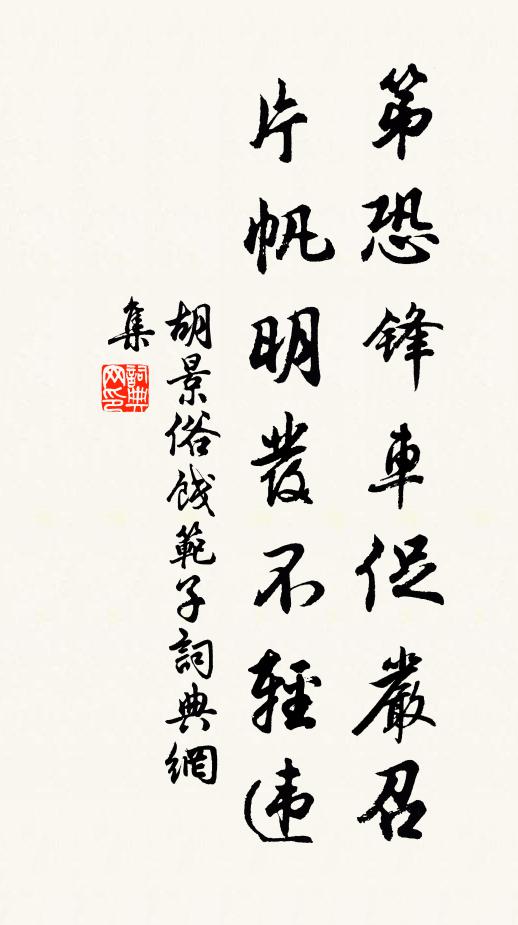 第恐锋車促嚴召
片帆明發不輕违
胡景俗餞範子詞典網
集
詞典
网印